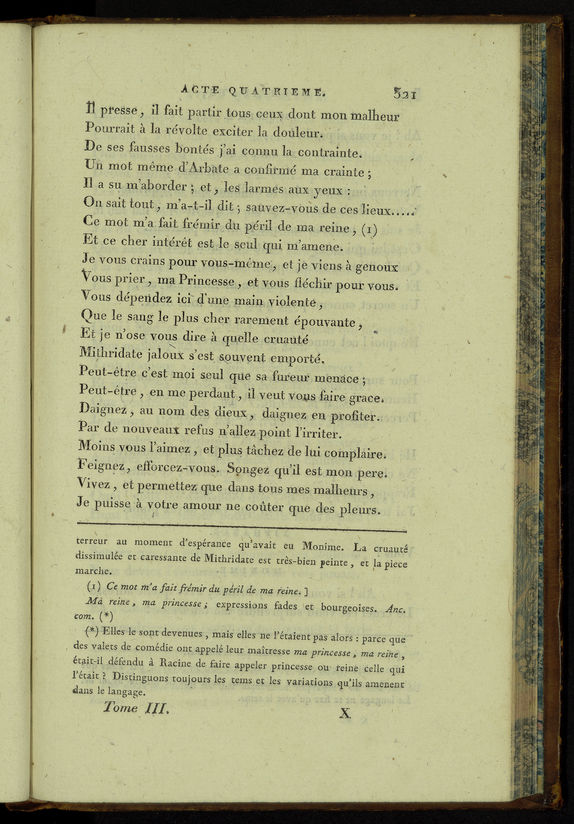 ACTE QUATRIEME. 321
Il presse, il fait partir tous ceux dont mon malheur
Pourrait à la révolte exciter la douleur.
De ses fausses bontés j'ai connu la contrainte.
Un mot même d'Arbate a confirmé ma crainte ;
Il a su m'aborder ; et, les larmes aux yeux :
On sait tout, m'a-t-il dit ; sauvez-vous de ces lieux.....
Ce mot m'a fait frémir du péril de ma reine, (1)
Et ce cher intérêt est le seul qui m'amene.
Je vous crains pour vous-même, et je viens à genoux
Vous prier, ma Princesse, et vous fléchir pour vous.
Vous dépendez ici d'une main violente,
Que le sang le plus cher rarement épouvante,
Et je n'ose vous dire à quelle cruauté
Mithridate jaloux s'est souvent emporté.
Peut-être c'est moi seul que sa fureur menace ;
Peut-être, en me perdant, il veut vous faire grace.
Daignez, au nom des dieux, daignez en profiter.
Par de nouveaux refus n'allez point l'irriter.
Moins vous l'aimez, et plus tâchez de lui complaire.
Feignez, efforcez-vous. Songez qu'il est mon pere.
Vivez, et permettez que dans tous mes malheurs,
Je puisse à votre amour ne coûter que des pleurs.
terreur au moment d'espérance qu'avait eu Monime. La cruauté
dissimulée et caressante de Mithridate est très-bien peinte, et la piece
marche.
(1) Ce mot m'a fait frémir du péril de ma reine. ]
Ma reine, ma princesse ; expressions fades et bourgeoises. Anc.
com. (*)
(*) Elles le sont devenues, mais elles ne l'étaient pas alors : parce que
des valets de comédie ont appelé leur maîtresse ma princesse, ma reine,
était-il défendu à Racine de faire appeler princesse ou reine celle qui
l'était ? Distinguons toujours les tems et les variations qu'ils amenent
dans le langage.
Tome III. X